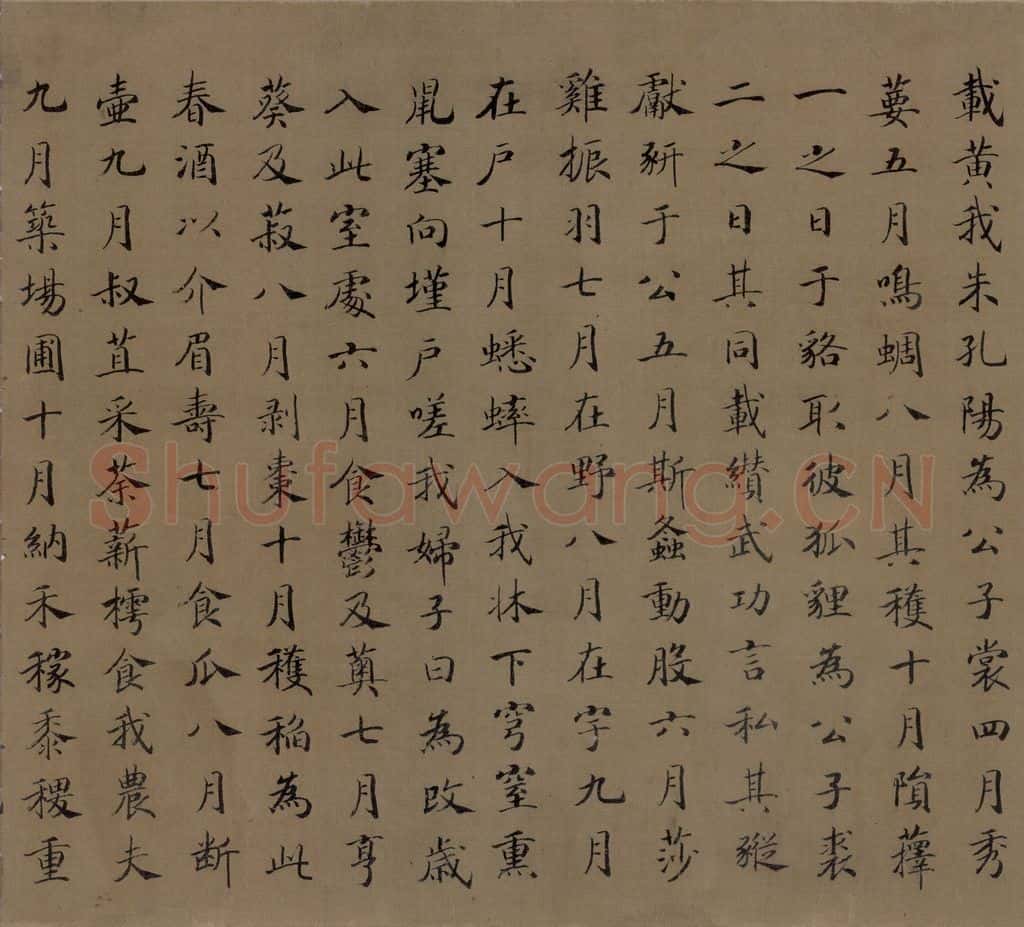 載黃我朱孔陽為公子裳四月秀
葽五月鳴蜩八月其穫十月隕蘀
一之日于貉取彼狐貍為公子裘
二之日其同載纘武功言私其豵
獻豜于公五月斯螽動股六月莎
雞振羽七月在野八月在宇九月
在戶十月蟋蟀入我牀下穹窒熏
鼠塞向墐戶嗟我婦子曰為改歲
入此室處六月食鬱及薁七月亨
葵及菽八月剥棗十月穫稻為此
春酒以介眉壽七月食瓜八月断
壷九月叔苴采荼薪樗食我農夫
九月築場圃十月納禾稼黍稷重
Shufawang.CN